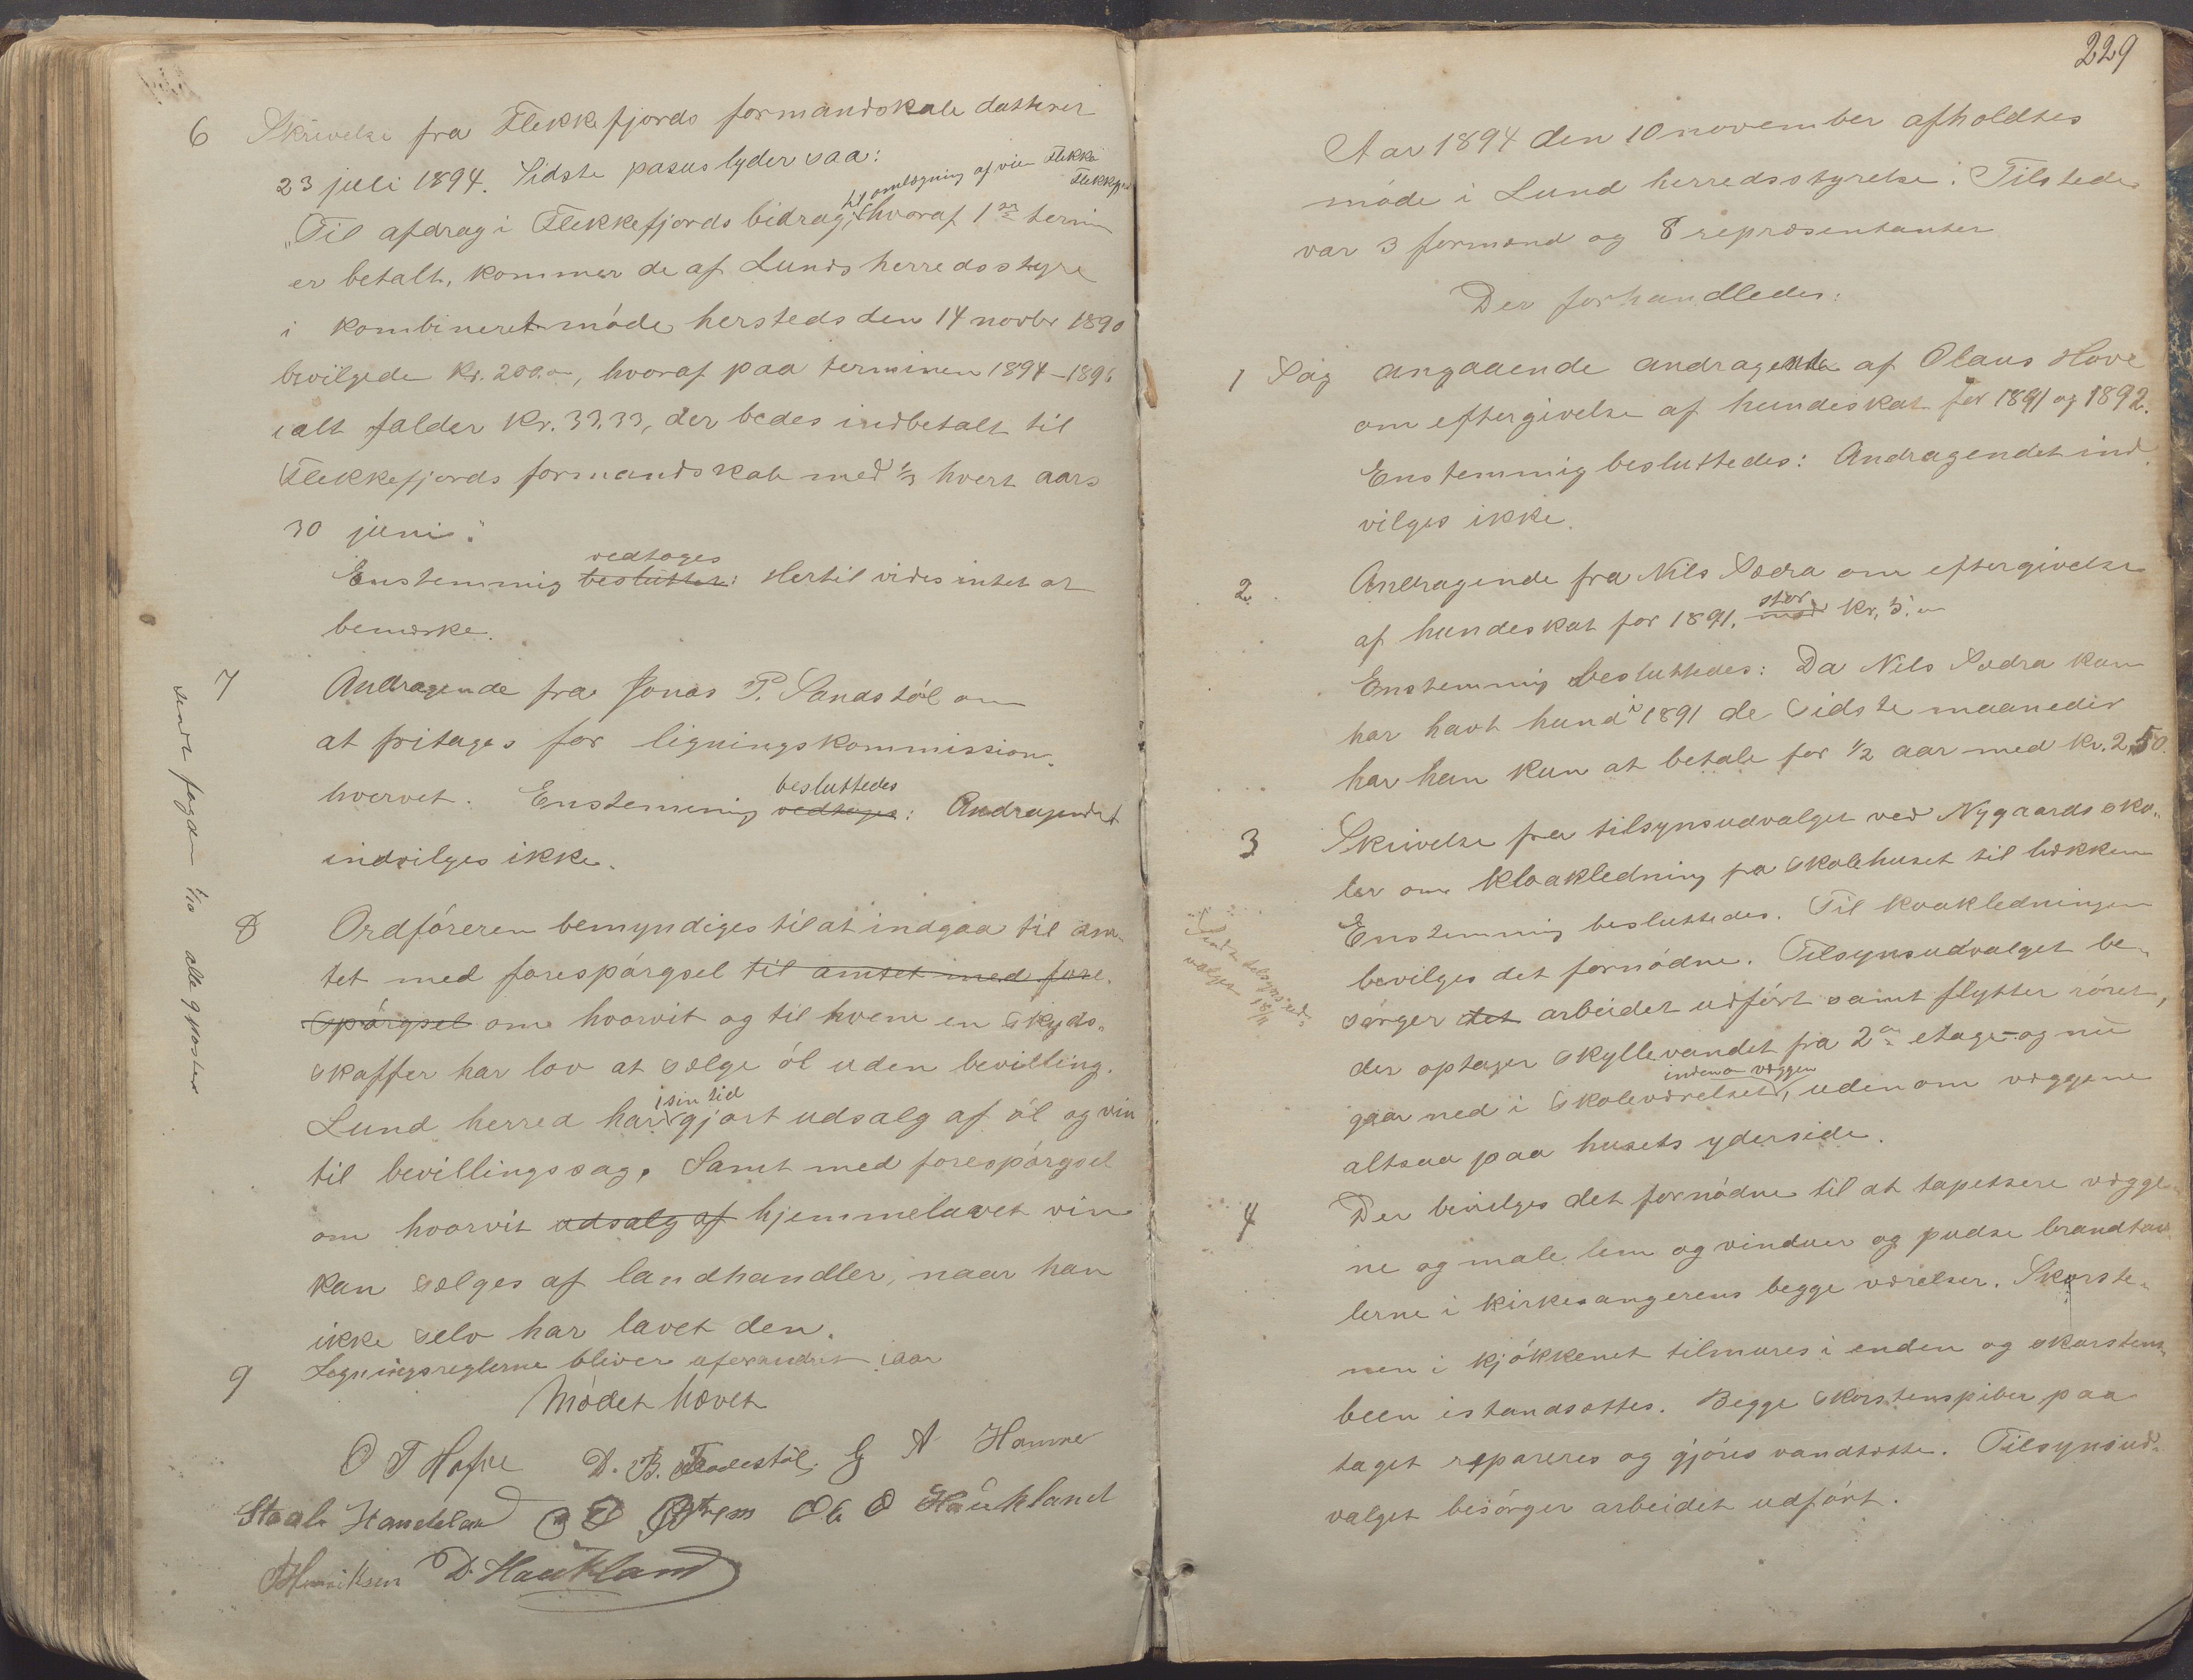 6 Skrivelse fra Flekkefjords formandskab datterer
23 juli 1894. Sidste pasus lyder saa:
"Til afdrag i Flekkefjords bidrag, til omlægning af vein Flekke Flekkefj hvoraf 1ste termin
er betalt, kommer de af Lunds herredsstyre
i kombineret møde hersteds den 14 novbr 1890
bevilgede Kr. 200.00, hvoraf paa terminen 1894-1896
ialt falder Kr. 33.33, der bedes indbetalt til
Flekkefjords formandskab med 1/3 hvert aars
30 juni."
Enstemmig besluttet vedtoges: Hertil vides intet at
bemerke.
7 Andragende fra Jonas P. Sandstøl om
at fritages for ligningskommission-
hvervet. Enstemmig vedtoges besluttedes: Andragendet
indvilges ikke.
sendt fogden 1/10 alle 9 poster
8 Ordføreren bemyndiges til at indgaa til am-
tet med forespørgsel til amtet med fore-
spørgsel om hvorvit og til hvem en skyds-
skaffer har lov at sælge øl uden bevilling.
Lund herred har i sin tid gjort udsalg af øl og vin
til bevillingssag. Samt med forespørgsel
om hvorvit udsalg af hjemmelavet vin
kan sælges af landhandler, naar han
ikke selv har lavet den.
9 Legningsreglerne bliver uforandret iaar
Mødet hævet
O T Hofve D. B. Tradestøl. G A Hamre
Staale Handeland O O Ole O Haukland
Henriksen D. Haukland
229
Aar 1894 den 10 november afholdtes
møde i Lund herredsstyrelse. Tilstede
var 3 formænd og 8 repræsentanter
Der forhandledes:
1 Sag angaaende andragende af Olaus Hove
om eftergivelse af hundeskat for 1891 og 1892.
Enstemmig besluttedes: Andragendet ind-
vilges ikke.
2. Andragende fra Nils Sædra om eftergivelse
af hundeskat for 1891, med stor Kr. 5.00
Enstemmig besluttedes: Da Nils Sædra kun
har havt hund i 1891 de sidste maaneder
har han kun at betale for 1/2 aar med Kr. 2,50.
3 Skrivelse fra tilsynsudvalget ved Nygaards sko-
ler om kloakledning fra skolehuset til bækken
Enstemmig besluttedes. Til kloakledningen
bevilges det fornødne. Tilsynsudvalget be-
sørger det arbeidet udført samt flytter røret,
der optager skyllevandet fra 2den etage og nu
gaar ned i skoleværelset indenom væggen, udenom væggene
altsaa paa husets yderside.
Sendt tilsynsud-
valget 18/11
4 Der bevilges det fornødne til at tapetsere vægge-
ne og male lem og vinduer og pudse brandtav-
lerne i kirkesangerens begge værelser. Skorste-
nen i kjøkkenet tilmures i enden og skorstens-
been istandsættes. Begge skorstenspiber paa
taget repareres og gjøres vandtætte. Tilsynsud-
valget besørger arbeidet udført.